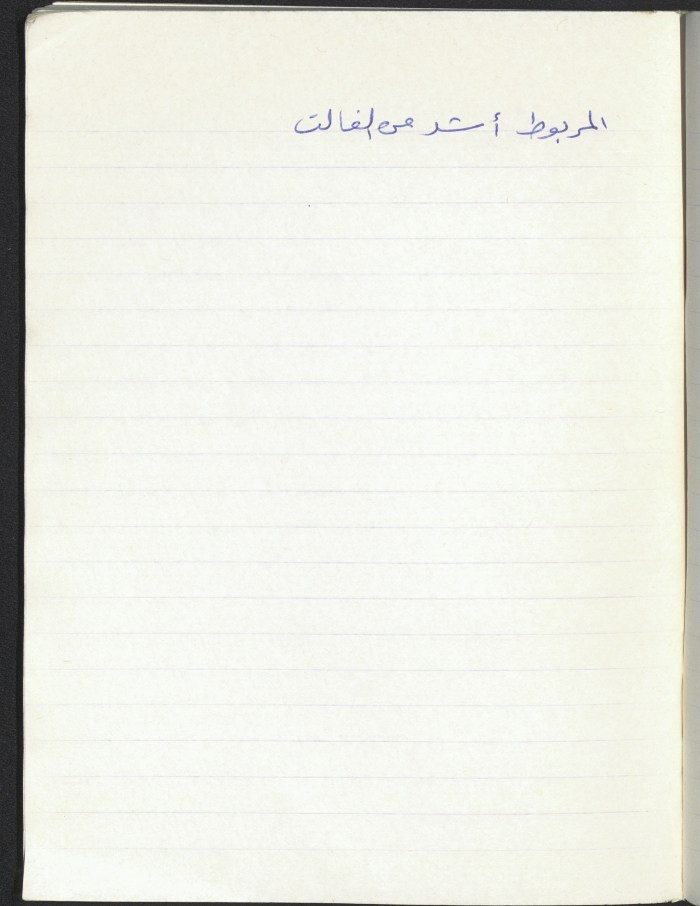 المربوط أشد من الفالت